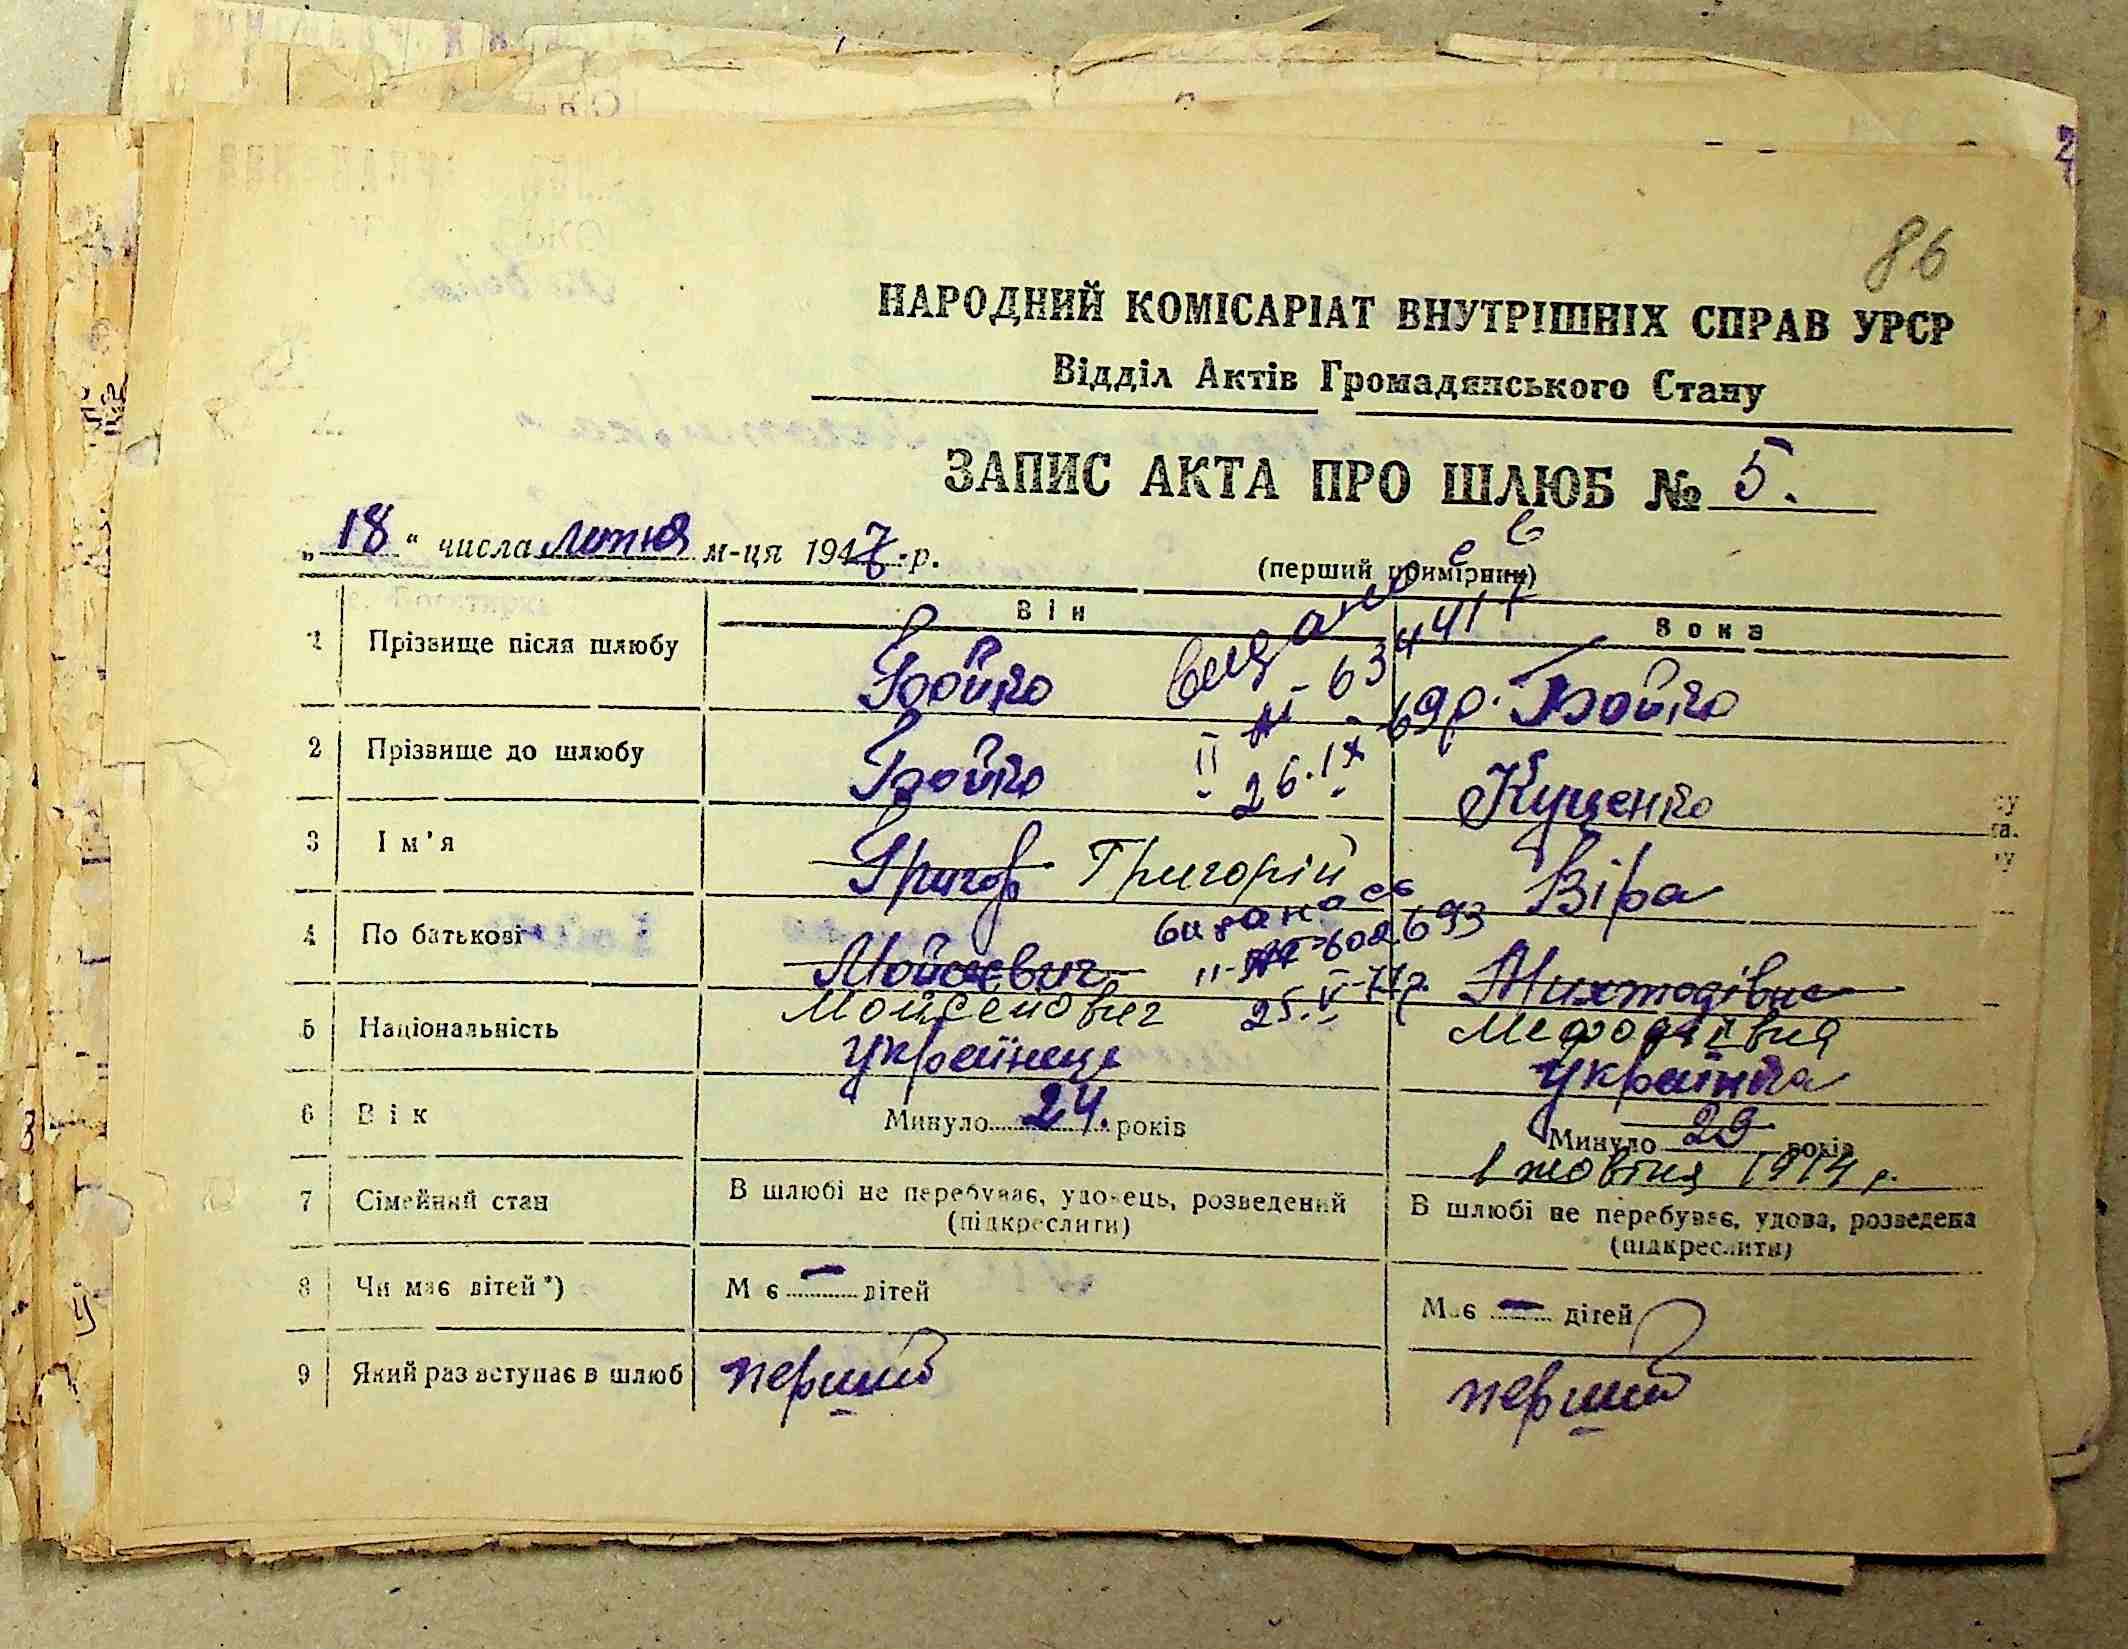 86
НАРОДНИЙ КОМІСАРІАТ ВНУТРІШНІХ СПРАВ УРСР
Відділ Актів Громадянського Стану
ЗАПИС АКТА ПРО ШЛЮБ № 5.
„ 18 “ числа лютня м-ця 1947 р.
(перший примірник)
Він Вона
1 Прізвище після шлюбу Бойко Бойко
видано св
II - 63 4417
26.IX - 69р.
2 Прізвище до шлюбу Бойко Куценко
3 Ім'я Григор Григорій Віра
видано св
4 По батькові Мойсеєвич Михтодівна
II- 602693
25.V-77р.
Мойсейович Мефодіївна
5 Національність українець українка
6 Вік Минуло 24. років Минуло 29 років
1 жовтня 1914 р.
7 Сімейний стан В шлюбі не перебуває, удовець, розведений В шлюбі не перебуває, удова, розведена
(підкреслити) (підкреслити)
8 Чи має дітей*) Має – дітей Має – дітей
9 Який раз вступає в шлюб перший перший